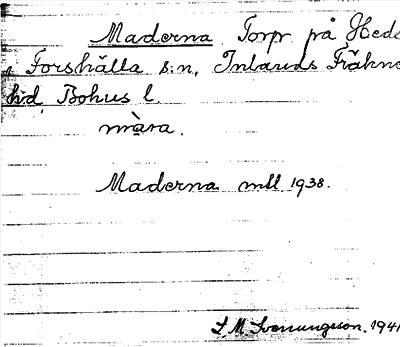 Maderna Torp på Heds
Forshälla s:n, Inlands Fräkne
hd, Bohus l.
måra.
Maderna mtl 1938.
S. M. Svenungsson. 1941